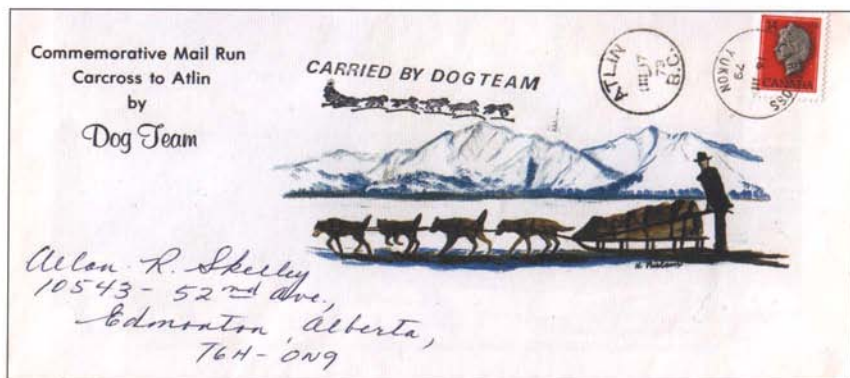 Commemorative Mail Run
Carcross to Atlin
by
Dog Team
CARRIED BY DOG TEAM
ATLIN
III 17
79
B.C.
OSS
III
79
YUKON
CANADA
Allan R. Skelley
10543 - 52nd ave.,
Edmonton, Alberta,
T6H-0N9